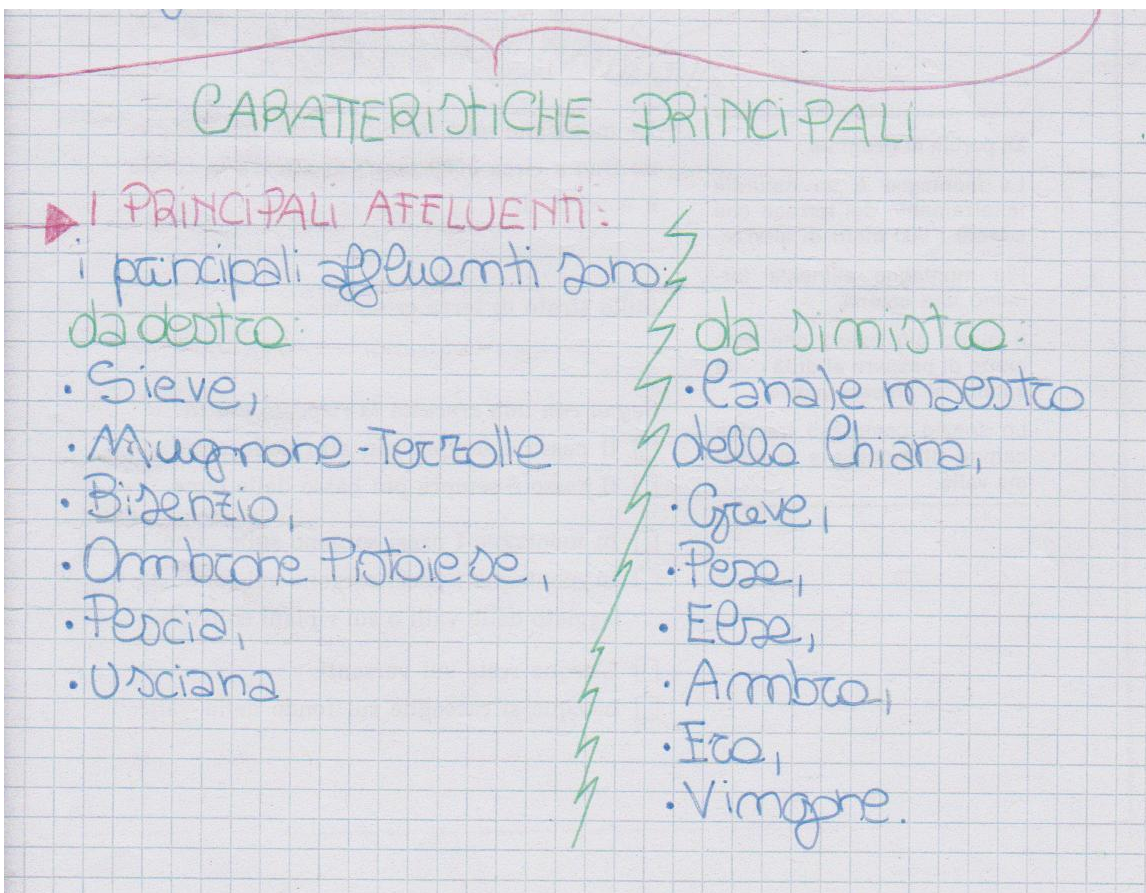 CARATTERISTICHE PRINCIPALI
I PRINCIPALI AFFLUENTI:
i principali affluenti sono:
da destra:
· Sieve,
· Mugnone-Terzolle
· Bisenzio,
· Ombrone Pistoiese,
· Pescia,
· Usciana
da sinistra:
· Canale maestro
della Chiana,
· Greve,
· Pesa,
· Elsa,
· Ambra,
· Era,
· Vingone.